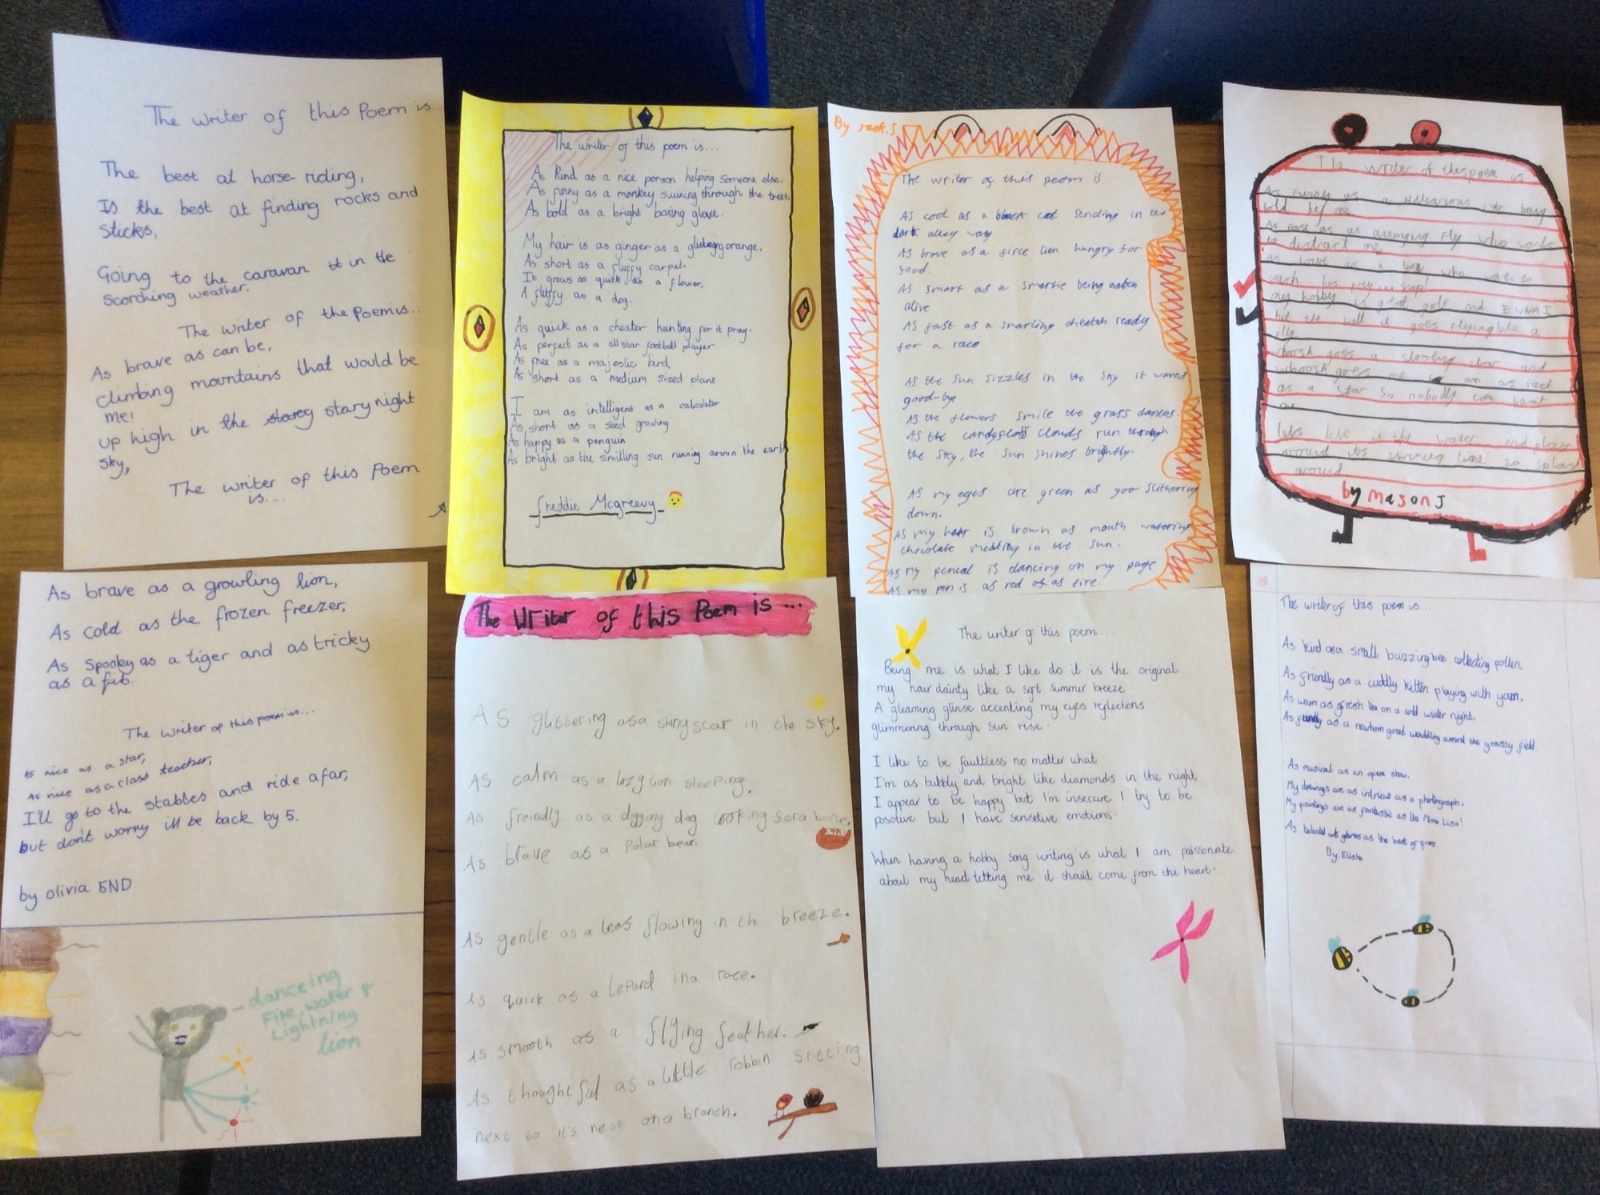 The writer of this Poem is...
The best at horse riding,
Is the best at finding rocks and
sticks,
Going to the caravan in the
scorching weather.
The writer of the Poem is...
As brave as can be,
climbing mountains that would be
me!
up high in the stary night
sky,
The writer of this Poem
is....
The writer of this poem is...
As kind as a nice person helping someone else.
As funny as a monkey swining through the trees.
As bold as a bright boxing glove.
My hair is as ginger as a glistening orange,
As short as a fluffy carpet.
It grows as quick as a flower,
A fluffy as a dog.
As quick as a cheater hunting for it pray.
As perfect as a allstar football player
As free as a majestic bird
As short as a medium sized plane
I am as intelligent as a calculator
As short as a seed growing
As happy as a penguin
As bright as the smiling sun running aroun the earth
freddie Mcgreevy
By Jack.S
The writer of this poem is
As cool as a black cat striding in the
dark alley way
As brave as a firce lion hungry for
food.
As smart as a smartie being eaten
alive
As fast as a snarling cheetah ready
for a race
As the sun sizzles in the sky it waves
good-bye
As the flowers smile the grass dances.
As the candyfloss clouds run through
the sky, the sun shines brightly.
As my eyes are green as goo slithering
down.
As my hair is brown as mouth watering
chocolate melting in the sun.
As my pencil is dancing on my page
As my pen is as red of as fire.
The writer of thes poem is
As funny as a
As annoying fly who works
to distract me
as a lion who waits to
catch his prey
my hobby is great golf and
hit the ball it goes flying like a
goes a and
whoosh goes me
as a star so nobody can beat
me
lets live in the water and play
around its swimming time so splash
around
by mason J
As brave as a growling lion,
As cold as the frozen freezer,
As Spooky as a tiger and as tricky
as a fib.
The writer of this poem is...
As nice as a star,
As nice as a class teacher,
I'll go to the stables and ride afar,
but don't worry ill be back by 5.
by olivia END
danceing
Fire, water &
Lightning
lion
The Writer of this Poem is...
As glittering as a shiny star in the sky.
As calm as a lazy lion sleeping.
As freindly as a digging dog looking for a bone.
As brave as a Polar bear.
As gentle as a leas flowing in the breeze.
As quick as a lepard in a race.
As smooth as a flying feather.
As thoughtful as a little robbin sitting
next to it's nest on a branch.
The writer of this poem....
Being me is what I like do it is the original
my hair dainty like a soft summer breeze
A gleaming glinse accenting my eyes reflections
glimmering through sun rise.
I like to be faultless no matter what
I'm as bubbly and bright like diamonds in the night
I appear to be happy but I'm insecure I try to be
positive but I have sensetive emotions.
When having a hobby song writing is what I am passionate
about my head telling me it should come from the heart.
The writer of this poem is...
As kind as a small buzzing bee collecting pollen,
As friendly as a cuddly kitten playing with yarn,
As warm as a fresh tea on a cold winter night,
As as a newborn goat waddling around the grassy field
As musical as an opera show,
My drawings are as intricat as a photograph,
My paintings are as fantastic as the Mona Lisa!
As at as the best of pros.
By Elisha